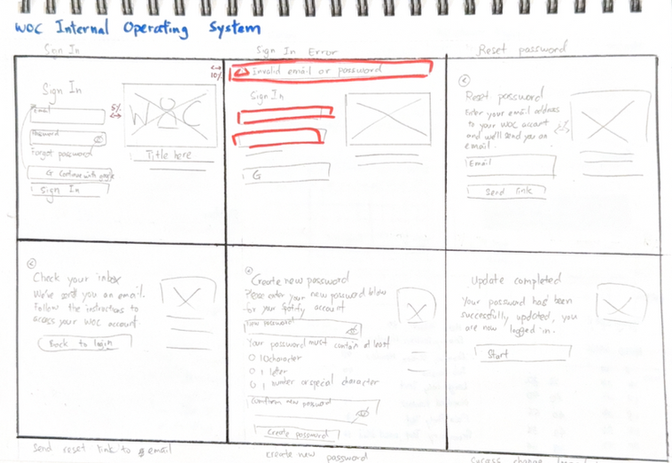 WOC Internal Operating System
Sign In
Sign In Error
Reset password
Sign In
Email
5%
Password
Forgot password
G Continue with google
Sign In
WOC
Title here
10%
Invalid email or password
Sign In
G
Reset password
Enter your email address
to your woc account
and we'll send you an
email
Email
Send link
Check your inbox
We've sent you an email.
Follow the instructions to
access your woc account
Back to login
Create new password
Please enter your new password below
for your Spotify account
New password
Your password must contain at least
O 10 character
O 1 letter
O 1 number or special character
Confirm new password
Create password
Update completed
Your password has been
successfully updated, you
are now logged in.
Start
Send reset link to email
Create new password